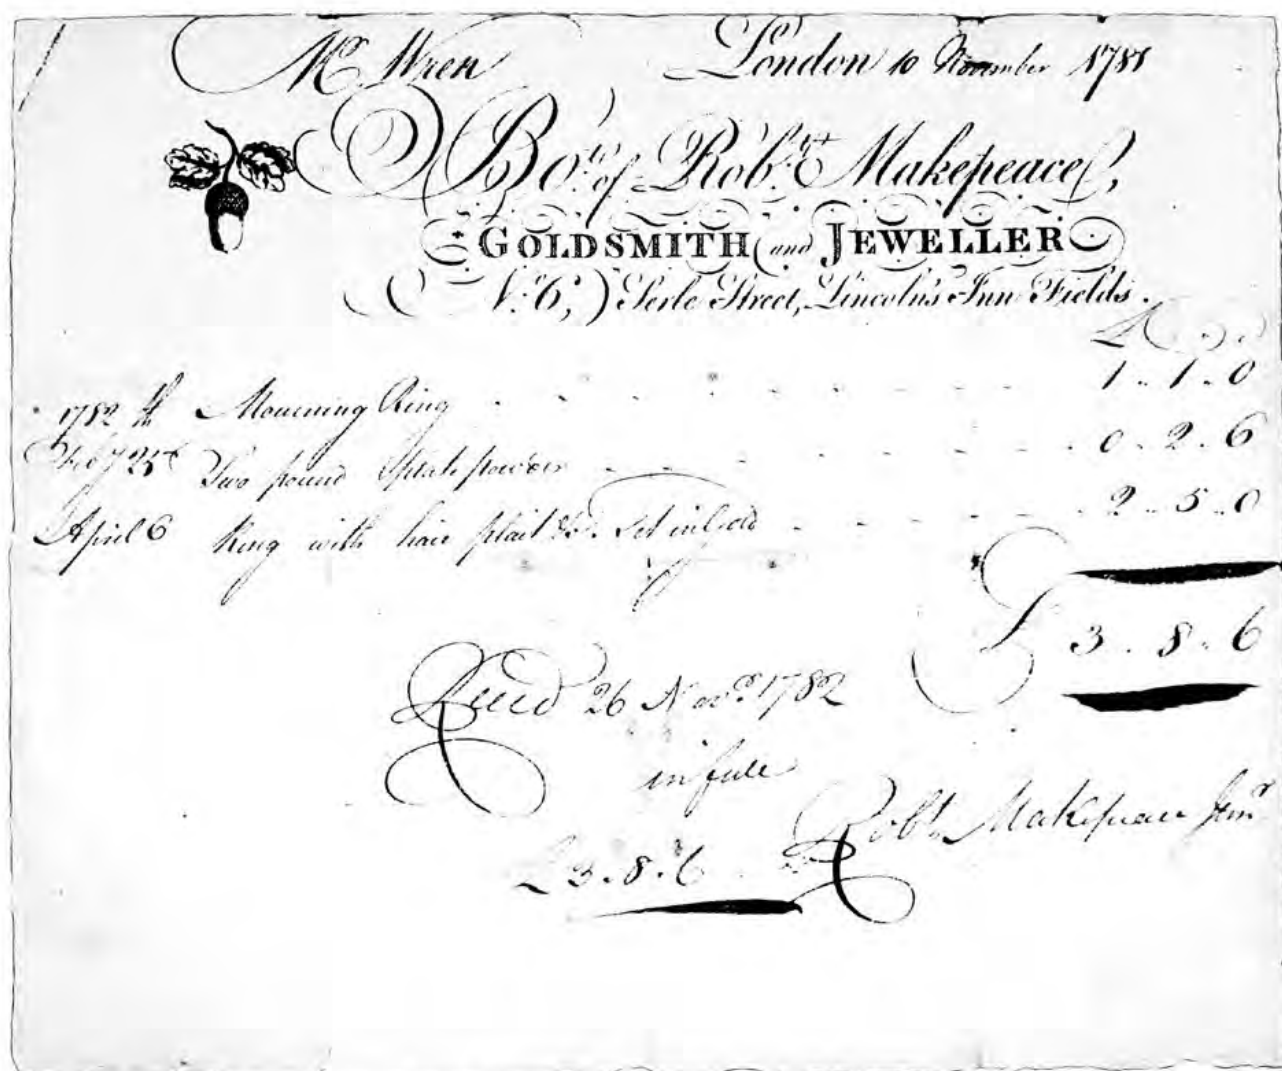 Mr. Wren London 10 November 1781
Bo.t of Rob.t Makepeace,
GOLDSMITH and JEWELLER
N.o 6, Serle Street, Lincoln's Inn Fields.
£
Mourning Ring 1 - 1 - 0
1782
Feby 25th Two pound Plate powder 0 - 2 - 6
April 6 Ring with hair plait &c. Set in Gold 2 - 5 - 0
£ 3 - 8 - 6
Recd 26 Novr 1782
in full
£3 - 8 - 6 Robt. Makepeace Junr